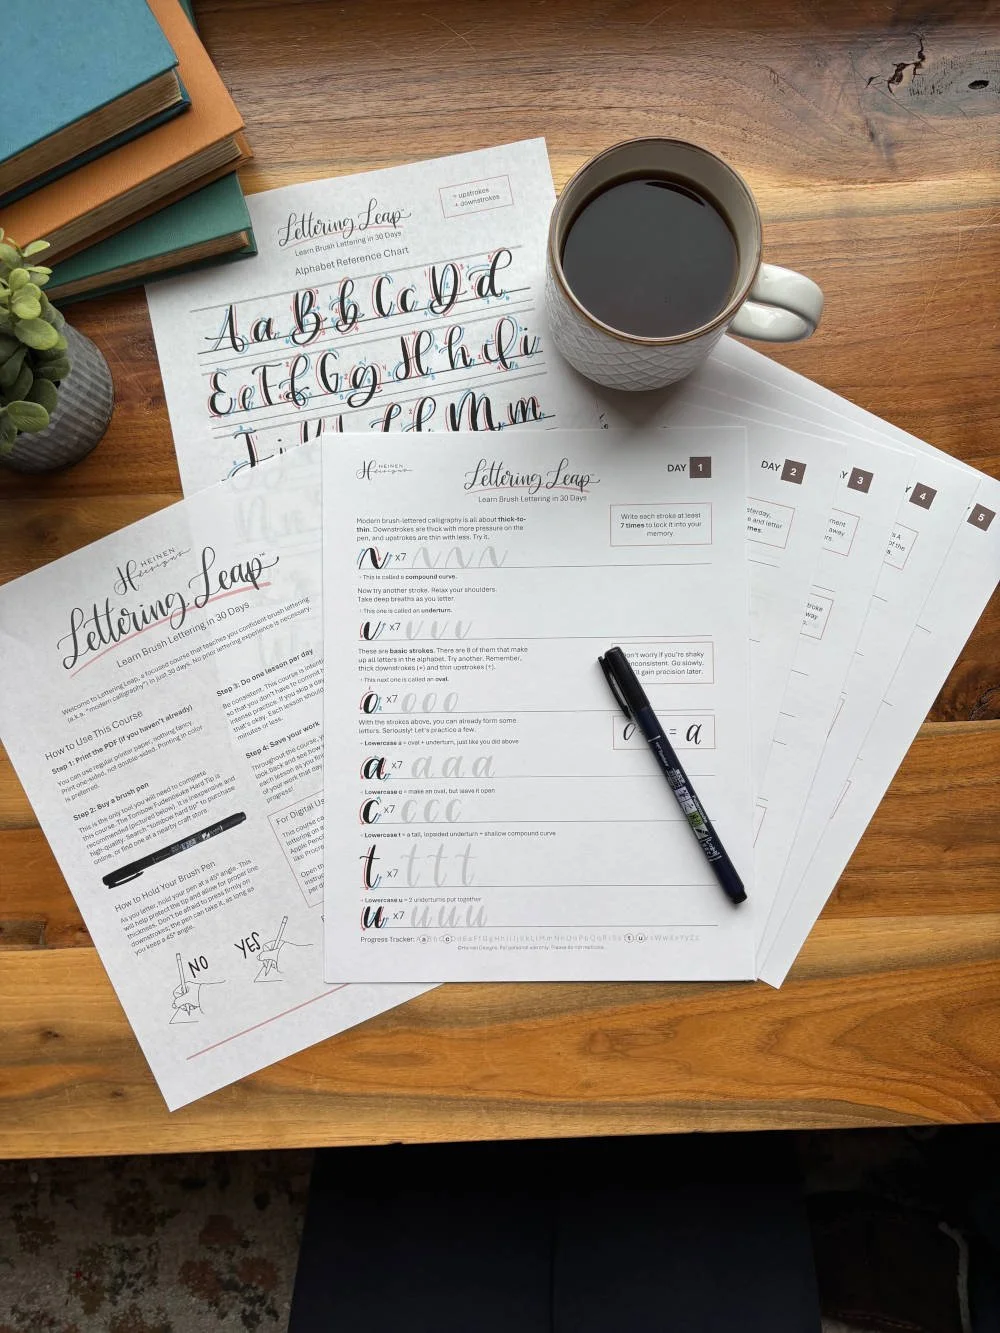 Lettering Leap™
Learn Brush Lettering in 30 Days
Alphabet Reference Chart
= upstrokes
+ downstrokes
A a B b C c D d
E e F f G g H h I i
M m
HEINEN
designs
Lettering Leap™
Learn Brush Lettering in 30 Days
Welcome to Lettering Leap, a focused course that teaches you confident brush lettering
(a.k.a. "modern calligraphy") in just 30 days. No prior lettering experience is necessary.
How to Use This Course
Step 1: Print the PDF (if you haven't already)
You can use regular printer paper, nothing fancy.
Print one-sided, not double-sided. Printing in color
is preferred.
Step 2: Buy a brush pen
This is the only tool you will need to complete
this course. The Tombow Fudenosuke Hard Tip is
recommended (pictured below). It is inexpensive and
high-quality. Search "tombow hard tip" to purchase
online, or find one at a nearby craft store.
How to Hold Your Brush Pen
As you letter, hold your pen at a 45° angle. This
will help protect the tip and allow for proper line
thickness. Don't be afraid to press firmly on
downstrokes; the pen can take it, as long as
you keep a 45° angle.
NO
YES
Step 3: Do one lesson per day
Be consistent. This course is
so that you don't have to commit
intense practice. If you skip a
that's okay. Each lesson should
minutes or less.
Step 4: Save your work
Throughout the course,
look back and see how
each lesson as you
of your work that
progress!
For Digital
This course
lettering on
Apple Pencil
like
Open
HEINEN
designs
Lettering Leap™
Learn Brush Lettering in 30 Days
DAY 1
Modern brush-lettered calligraphy is all about thick-to-
thin. Downstrokes are thick with more pressure on the
pen, and upstrokes are thin with less. Try it.
Write each stroke at least
7 times to lock it into your
memory.
x7
◦ This is called a compound curve.
Now try another stroke. Relax your shoulders.
Take deep breaths as you letter.
◦ This one is called an underturn.
x7
These are basic strokes. There are 8 of them that make
up all letters in the alphabet. Try another. Remember,
thick downstrokes (+) and thin upstrokes (↑).
◦ This next one is called an oval.
Don't worry if you're shaky
inconsistent. Go slowly.
gain precision later.
o x7 o o o
With the strokes above, you can already form some
letters. Seriously! Let's practice a few.
= a
◦ Lowercase a = oval + underturn, just like you did above
a x7 a a a
◦ Lowercase c = make an oval, but leave it open
c x7 c c c
◦ Lowercase t = a tall, lopsided underturn + shallow compound curve
t x7 t t t
◦ Lowercase u = 2 underturns put together
u x7 u u u
Progress Tracker:
©Heinen Designs. For personal use only. Please do not replicate.
DAY 2
3
4
5